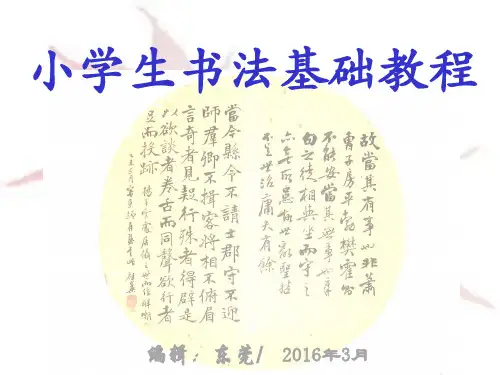 小学生书法基础教程
故當其有事也非蕭
曹子房平勃樊霍則
不能安當其無事也章
句之徒相與坐而守之
亦亡所患故世亂聖哲
不足世治庸夫有餘
當今縣令不請士郡守不迎
師羣卿不揖客將相不俯眉
言奇者見疑行殊者得辟是
以欲談者卷舌而同聲欲行者
足而投跡
编辑：东莞/ 2016年3月